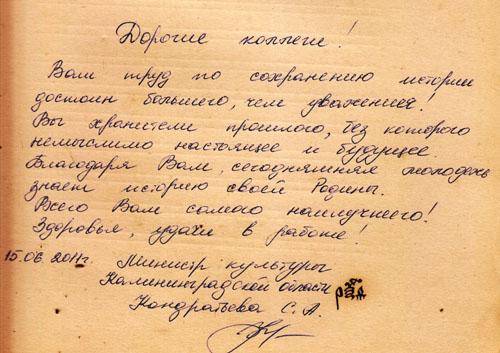 Дорогие коллеги!
Ваш труд по сохранению истории
достоин большего, чем уважения!
Вы хранители прошлого, без которого
немыслимо настоящее и будущее
Благодаря Вам, сегодняшняя молодежь
знает историю своей Родины.
Всего Вам самого наилучшего!
Здоровья, удачи в работе!
15.06.2011г. Министр культуры
Калининградской области
Кондратьева С. А.